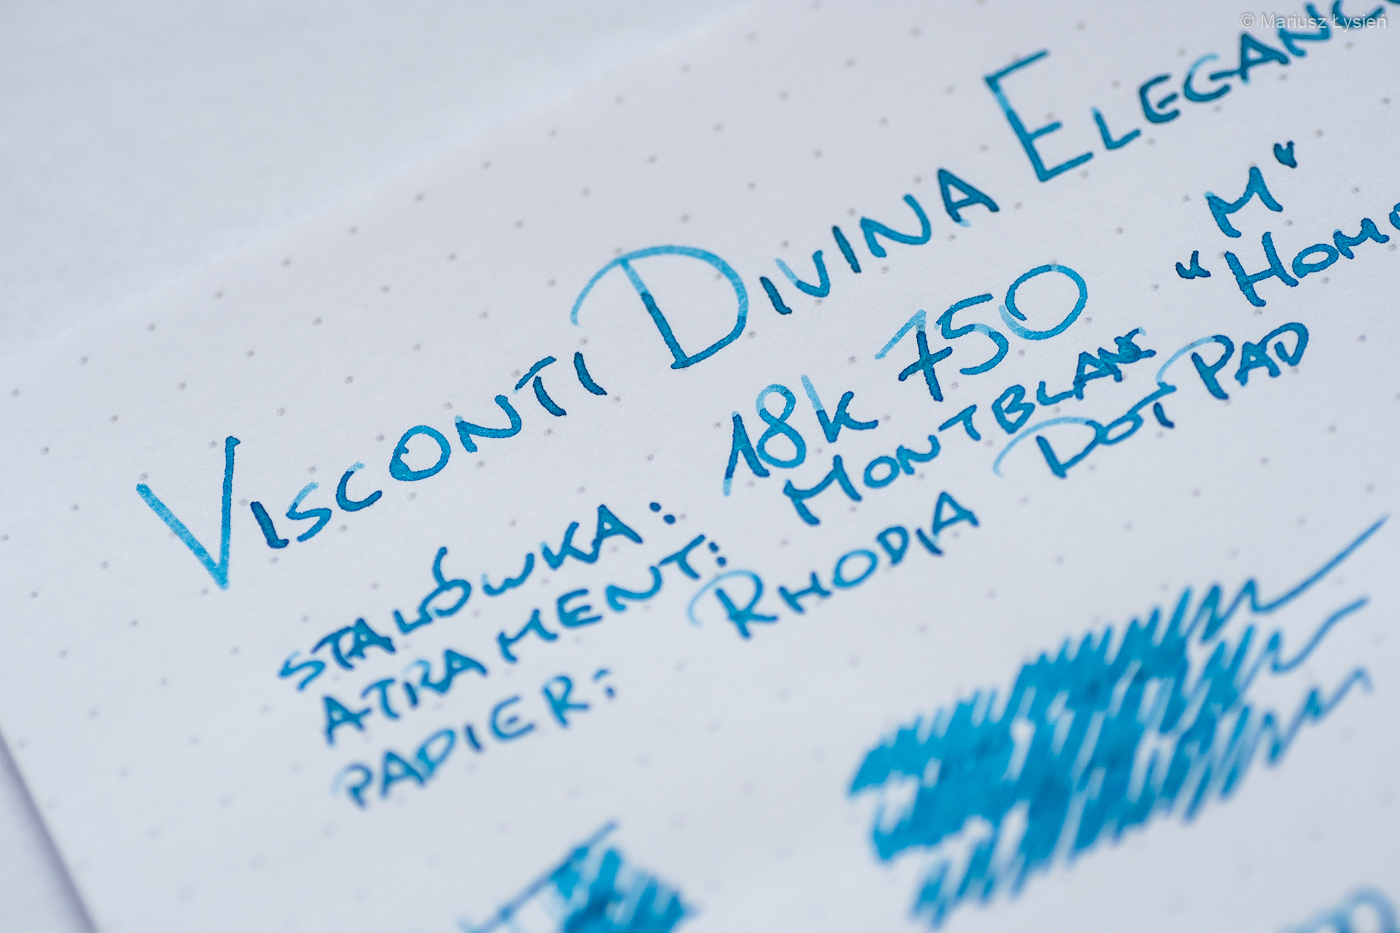 © Mariusz Łysień
VISCONTI DIVINA ELEGANC
STALÓWKA: 18K 750 "M"
ATRAMENT: MONTBLANC "HOM
PAPIER: RHODIA DOT PAD